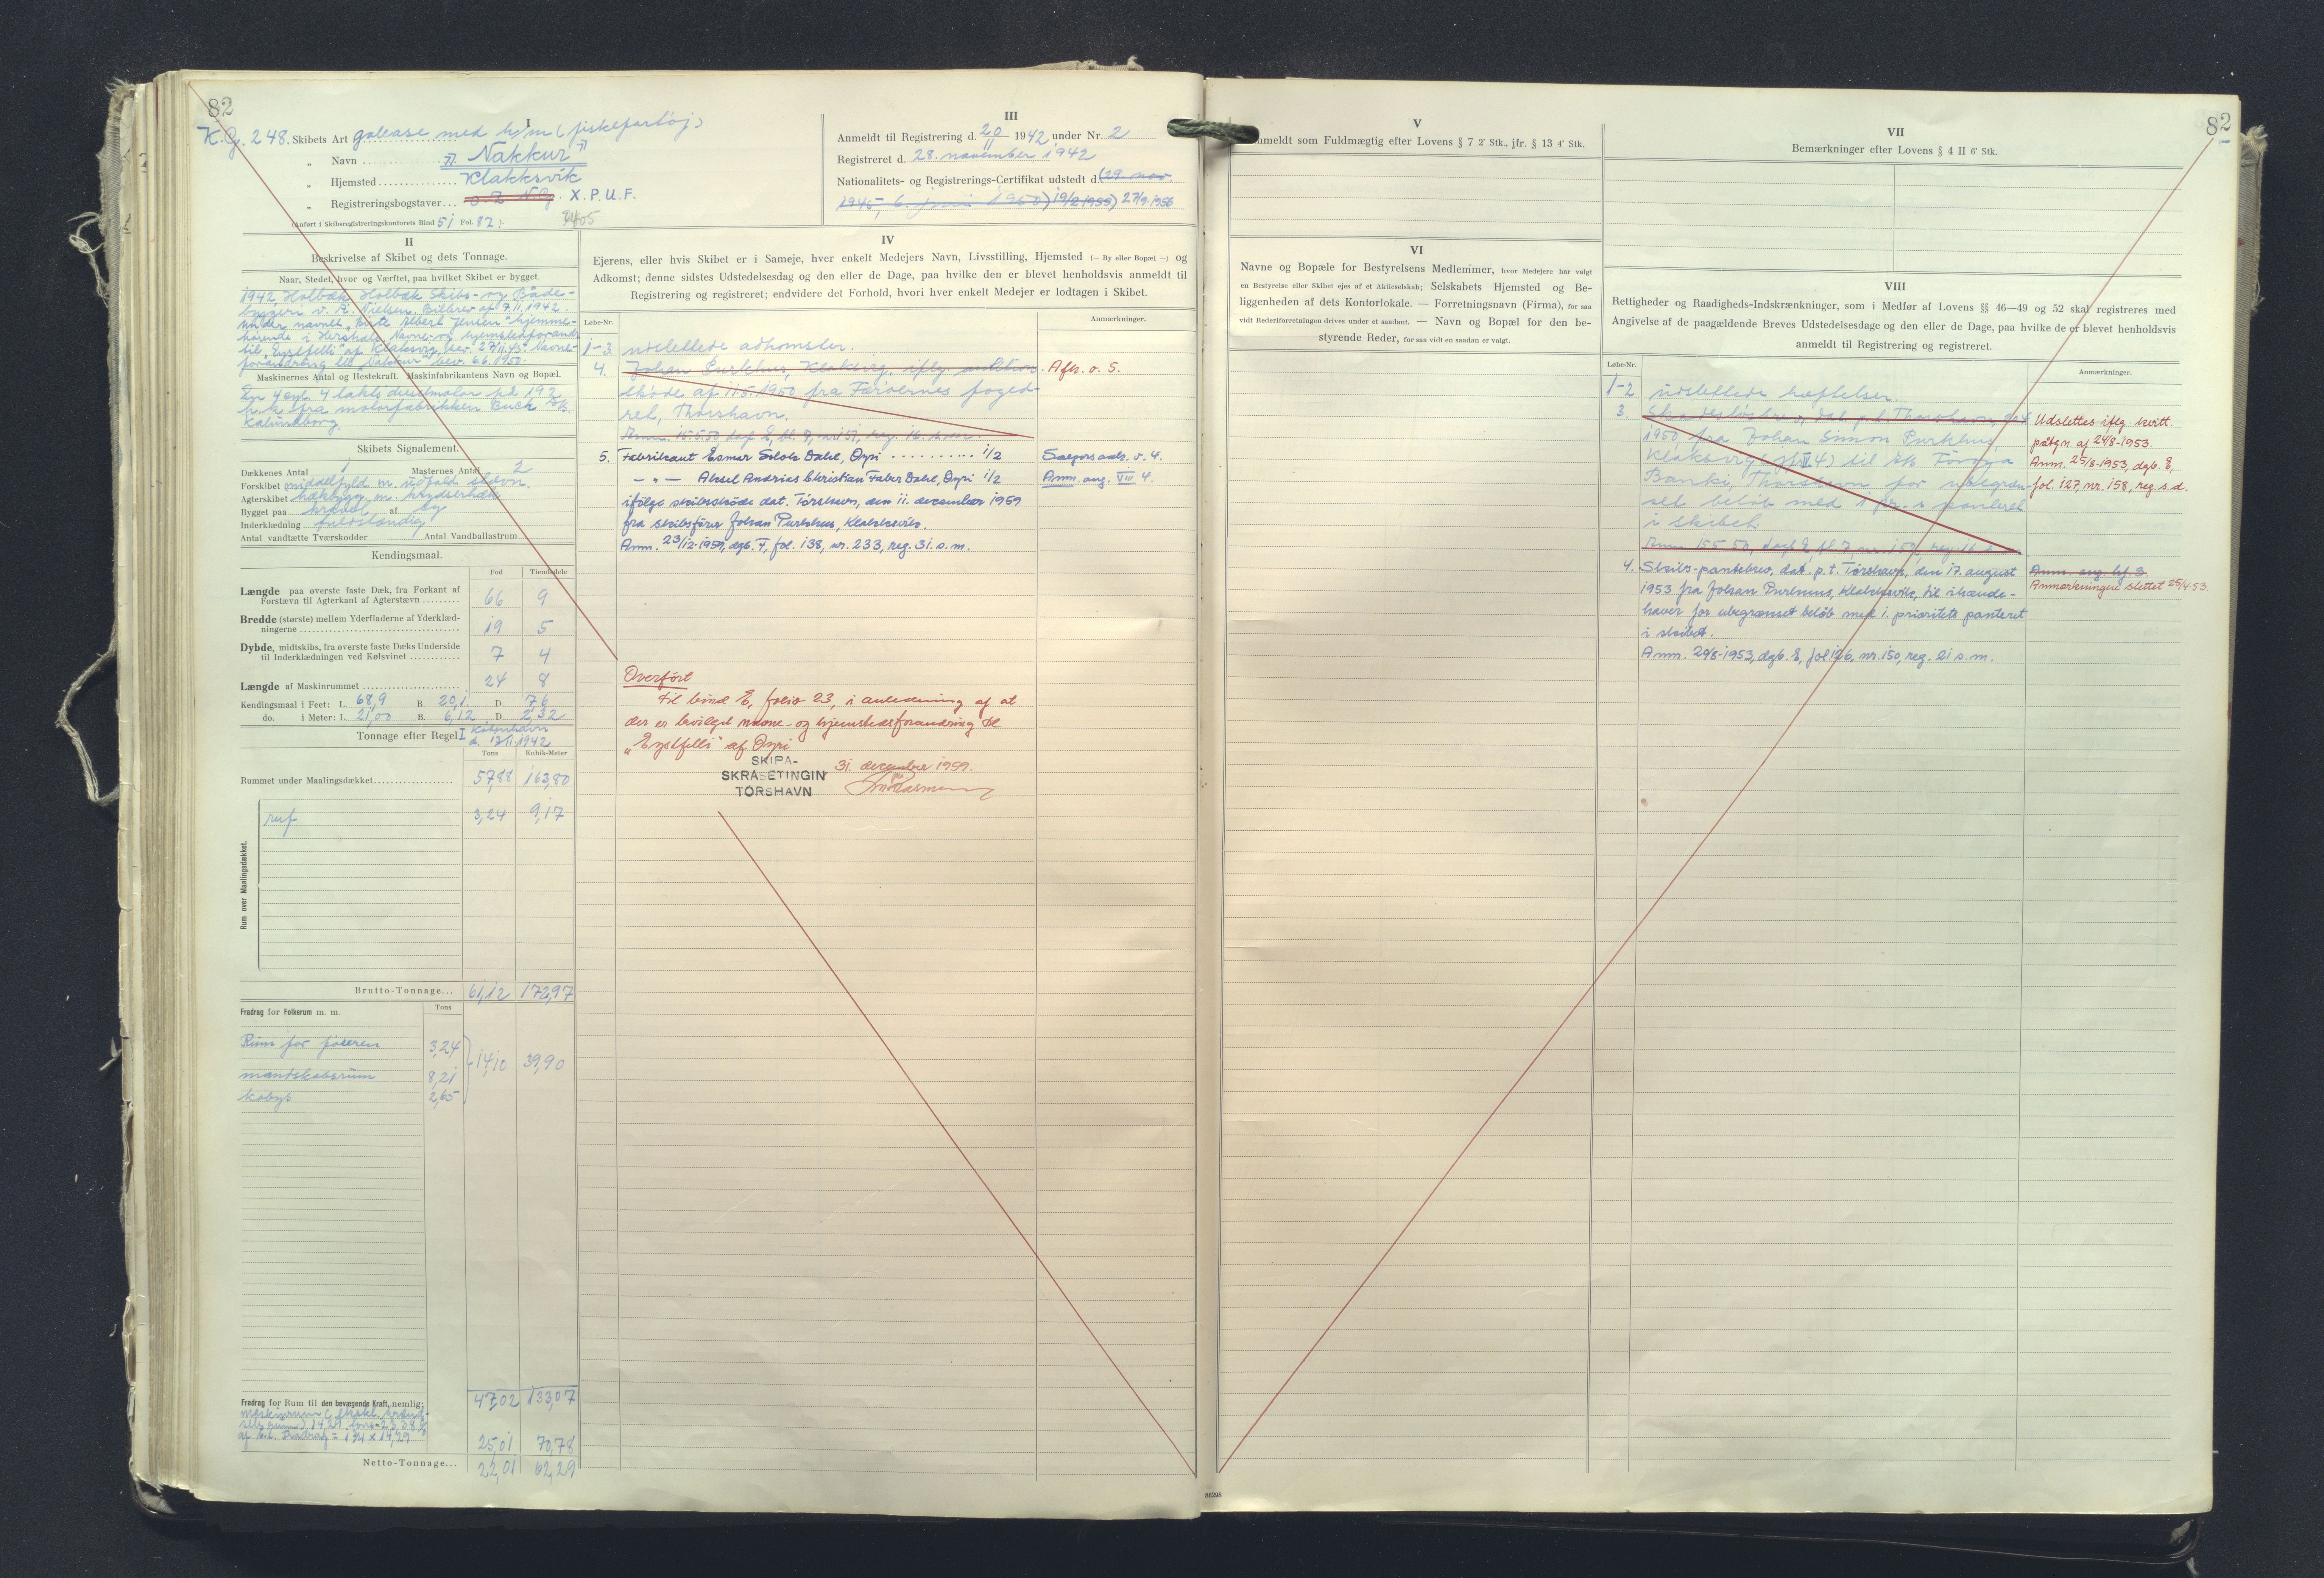 82
K.G. 248.
I
Skibets Art galease med h/m (fiskefartøj)
" Navn "Nakkur"
" Hjemsted Klakksvik
" Registreringsbogstaver... X.P.U.F.
(Anført i Skibsregistreringskontorets Bind 51 Fol. 82.)
III
Anmeldt til Registrering d. 20/11 1942 under Nr. 2
Registreret d. 28. november 1942
Nationalitets- og Registrerings-Certifikat udstedt d. (29. nov.
1945, 6. juni 1950) 19/2 1955) 27/9 1956
II
Beskrivelse af Skibet og dets Tonnage.
Naar, Stedet, hvor og Værftet, paa hvilket Skibet er bygget.
1942, Holbæk, Holbæk Skibs- og Baade-
byggeri v. A. Nielsen. Bilbrev af 7.11.1942.
under navnet "Birte Albert Jensen" hjemme-
hørende i Hirshals. Navne- og hjemstedsforandr.
til "Eystfelli" af Klaksvig, bev. 27/11.45. Navne-
forandring til "Nakkur" bev. 6.6.1950.
Maskinernes Antal og Hestekraft. Maskinfabrikantens Navn og Bopæl.
En 4 cyl. 4 takts dieselmotor på 192
h.k. fra motorfabrikken Buck A/S.
Kalundborg.
Skibets Signalement.
Dækkenes Antal 1 Masternes Antal 2
Forskibet middelfyld m. udfald stævn.
Agterskibet hækbygg. m. krydserhæk
Bygget paa kravel af eg
Inderklædning fuldstændig
Antal vandtætte Tværskodder Antal Vandballastrum
Kendingsmaal.
Fod Tiendedele
Længde paa øverste faste Dæk, fra Forkant af
Forstævn til Agterkant af Agterstævn 66 9
Bredde (største) mellem Yderfladerne af Yderklæd-
ningerne 19 5
Dybde, midtskibs, fra øverste faste Dæks Underside
til Inderklædningen ved Kølsvinet 7 4
Længde af Maskinrummet 24 8
Kendingsmaal i Feet: L. 68,9 B. 20,1 D. 7,6
do. i Meter: L. 21,00 B. 6,12 D. 2,32
Tonnage efter Regel I København
d. 17/11.1942
Tons Kubik-Meter
Rummet under Maalingsdækket 57,88 163,80
Rum over Maalingsdækket.
ruf 3,24 9,17
Brutto-Tonnage... 61,12 172,97
Fradrag for Folkerum m. m. Tons
Rum for føreren 3,24
14,10 39,90
mandskabsrum 8,21
kabys 2,65
47,02 133,07
Fradrag for Rum til den bevægende Kraft, nemlig:
af b.t. Fradrag = 1 3/4 x 14,29
25,01 70,78
Netto-Tonnage... 22,01 62,29
IV
Ejerens, eller hvis Skibet er i Sameje, hver enkelt Medejers Navn, Livsstilling, Hjemsted (— By eller Bopæl —) og
Adkomst; denne sidstes Udstedelsesdag og den eller de Dage, paa hvilke den er blevet henholdsvis anmeldt til
Registrering og registreret; endvidere det Forhold, hvori hver enkelt Medejer er lodtagen i Skibet.
Løbe-Nr. Anmærkninger.
1-3 udslettede adkomster.
4. Johan Purkhus, Klaksvig, iflg. auktions- Afh. v. 5.
skøde af 11.5.1950 fra Færøernes foged-
ret, Thorshavn.
Anm. 15.5.50, dagb. E, bl. 7, nr. 151, reg. 16. s.m.
5. Fabrikant Esmar Sólolv Dahl, Øyri 1/2 Sælgers adk. v. 4.
— " — Aksel Andrias Christian Faber Dahl, Øyri 1/2 Anm. ang. VIII 4.
ifølge skibsskøde dat. Tórshavn, den 11. december 1959
fra skibsfører Johan Purkhus, Klakksvík.
Anm. 23/12-1959, dgb. F, fol. 138, nr. 233, reg. 31. s. m.
Overført
til bind E, folio 23, i anledning af at
der er bevilget navne- og hjemstedsforandring til
"Eystfelli" af Øyri
SKIPA-
SKRÁSETINGIN
TÓRSHAVN
31. december 1959.
82
V
Anmeldt som Fuldmægtig efter Lovens § 7 2' Stk., jfr. § 13 4' Stk.
VI
Navne og Bopæle for Bestyrelsens Medlemmer, hvor Medejere har valgt
en Bestyrelse eller Skibet ejes af et Aktieselskab; Selskabets Hjemsted og Be-
liggenheden af dets Kontorlokale. — Forretningsnavn (Firma), for saa
vidt Rederiforretningen drives under et saadant. — Navn og Bopæl for den be-
styrende Reder, for saa vidt en saadan er valgt.
VII
Bemærkninger efter Lovens § 4 II 6' Stk.
VIII
Rettigheder og Raadigheds-Indskrænkninger, som i Medfør af Lovens §§ 46—49 og 52 skal registreres med
Angivelse af de paagældende Breves Udstedelsesdage og den eller de Dage, paa hvilke de er blevet henholdsvis
anmeldt til Registrering og registreret.
Løbe-Nr. Anmærkninger.
1-2 udslettede hæftelser.
3. Skadesløsbrev, dat. p.t. Thorshavn,
1950, fra Johan Simon Purkhus,
Klaksvig til A/S Føroya
Banki, Thorshavn for ubegræn-
set beløb med 1. pr.s panteret
i skibet.
Anm. 15.5.50, dagb. E, bl. 7, nr. 150, reg. 16. s.m.
Udslettes iflg. kvitt.
påtegn. af 24/8-1953.
Anm. 25/8-1953, dgb. E,
fol. 127, nr. 158, reg. s.d.
4. Skibs-pantebrev, dat. p.t. Tórshavn, den 17. august
1953 fra Johan Purkhus, Klakksvík, til ihænde-
haver for ubegrænset beløb med 1. prioritets panteret
i skibet.
Anm. 20/8-1953, dgb. E, fol 126, nr. 150, reg. 21 s.m.
Anm. ang. hf. 3
Anmærkningen slettet 25/4 53.
86295